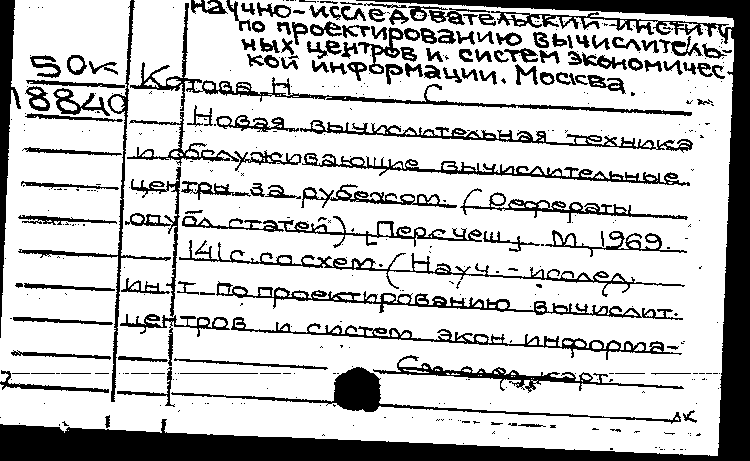 Научно-исследовательский институт
по проектированию вычислитель-
ных центров и систем экономичес-
кой информации. Москва.
50к Котова, Н С
18840
Новая вычислительная техника
и обслуживающие вычислительные
центры за рубежом. (Рефераты
опубл. статей). [Пер с чеш]. М., 1969.
141 с. со схем. (Науч.-исслед.
ин-т по проектированию вычислит.
центров и систем экон. информа-
См. след. карт.
дк